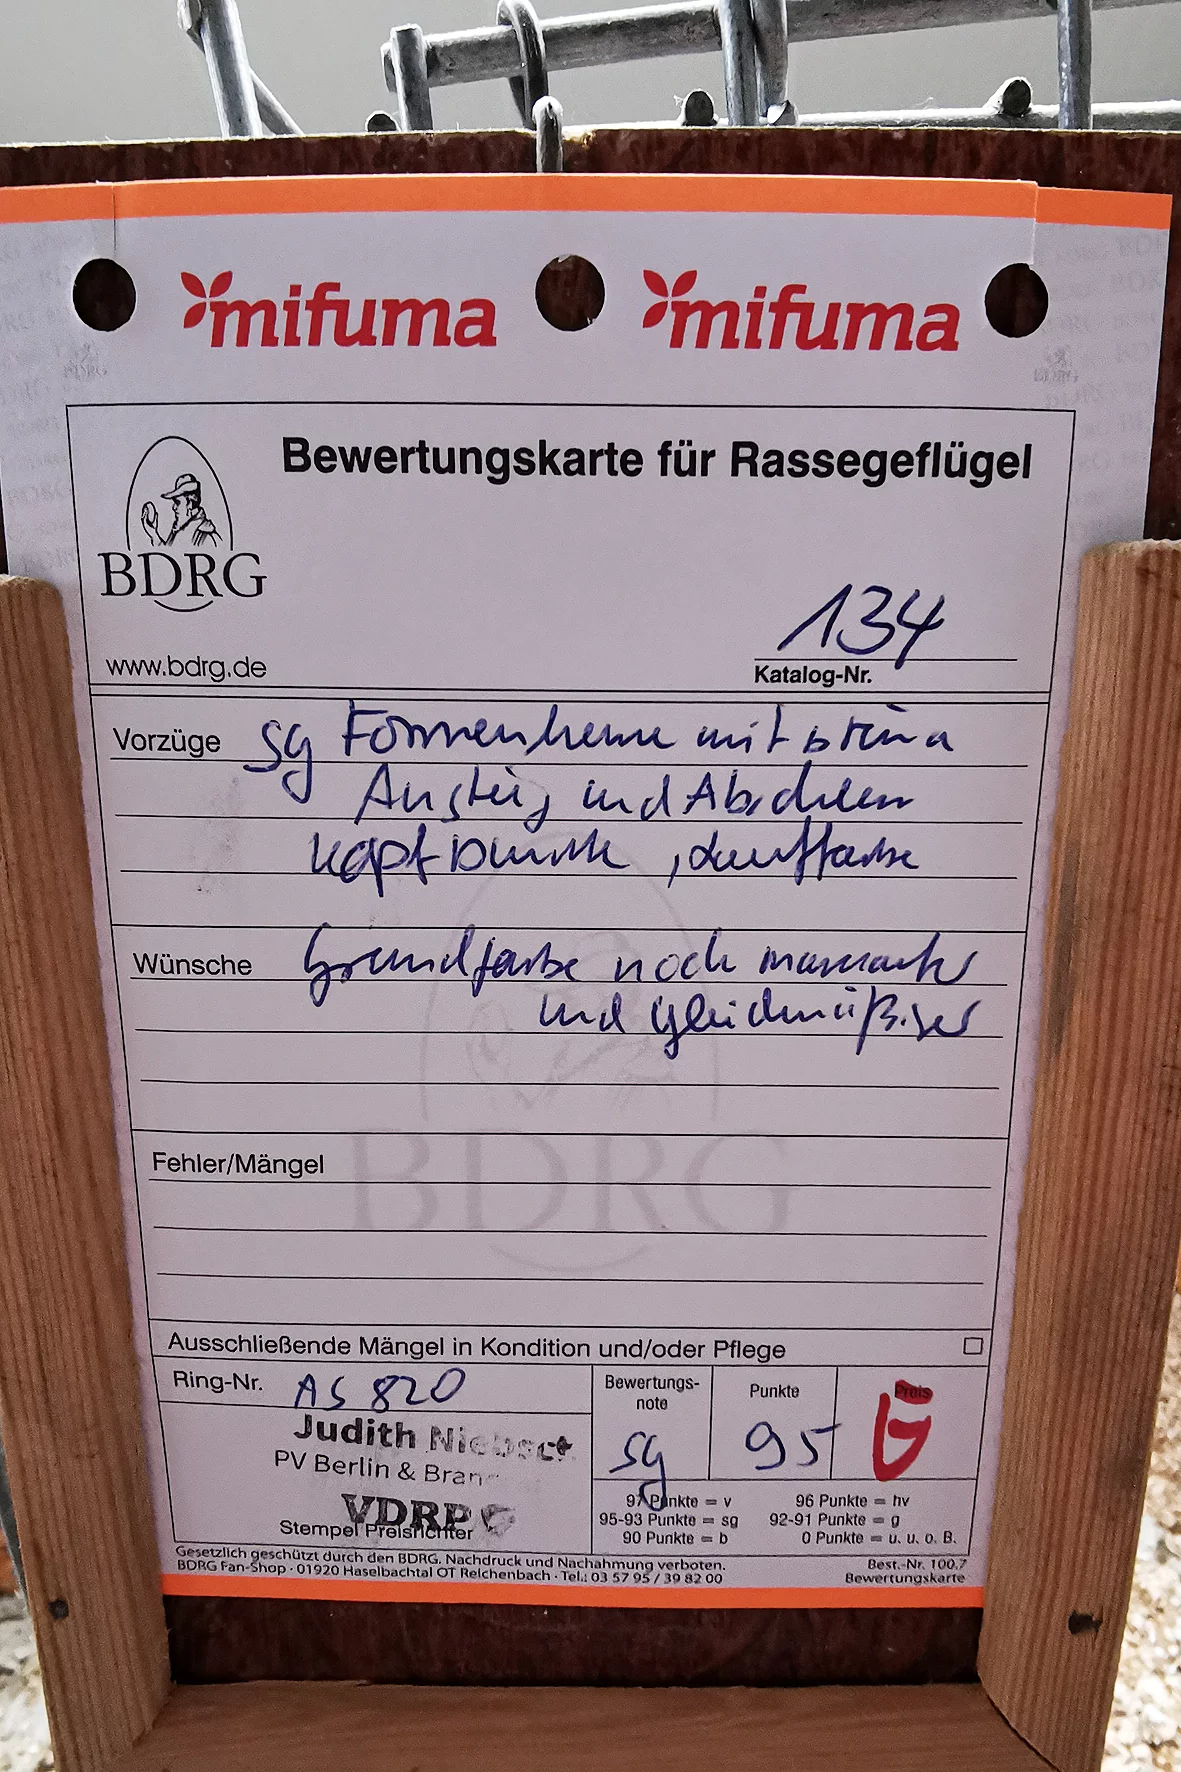 mifuma mifuma
Bewertungskarte für Rassegeflügel
BDRG
www.bdrg.de
134
Katalog-Nr.
Vorzüge sg Formenhenne mit
Anstieg und Abschluss
Kopfpunkte, Lauffarbe
Wünsche Grundfarbe noch markanter
und gleichmäßiger
BDRG
Fehler/Mängel
Ausschließende Mängel in Kondition und/oder Pflege
Ring-Nr. AS 820
Bewertungs-
note
sg
Punkte
95
Preis
G
Judith
PV Berlin & Bran
VDRP
Stempel Preisrichter
97 Punkte = v 96 Punkte = hv
95-93 Punkte = sg 92-91 Punkte = g
90 Punkte = b 0 Punkte = u. u. o. B.
Gesetzlich geschützt durch den BDRG. Nachdruck und Nachahmung verboten.
BDRG Fan-Shop · 01920 Haselbachtal OT Reichenbach · Tel.: 03 57 95 / 39 82 00
Best.-Nr. 100.7
Bewertungskarte